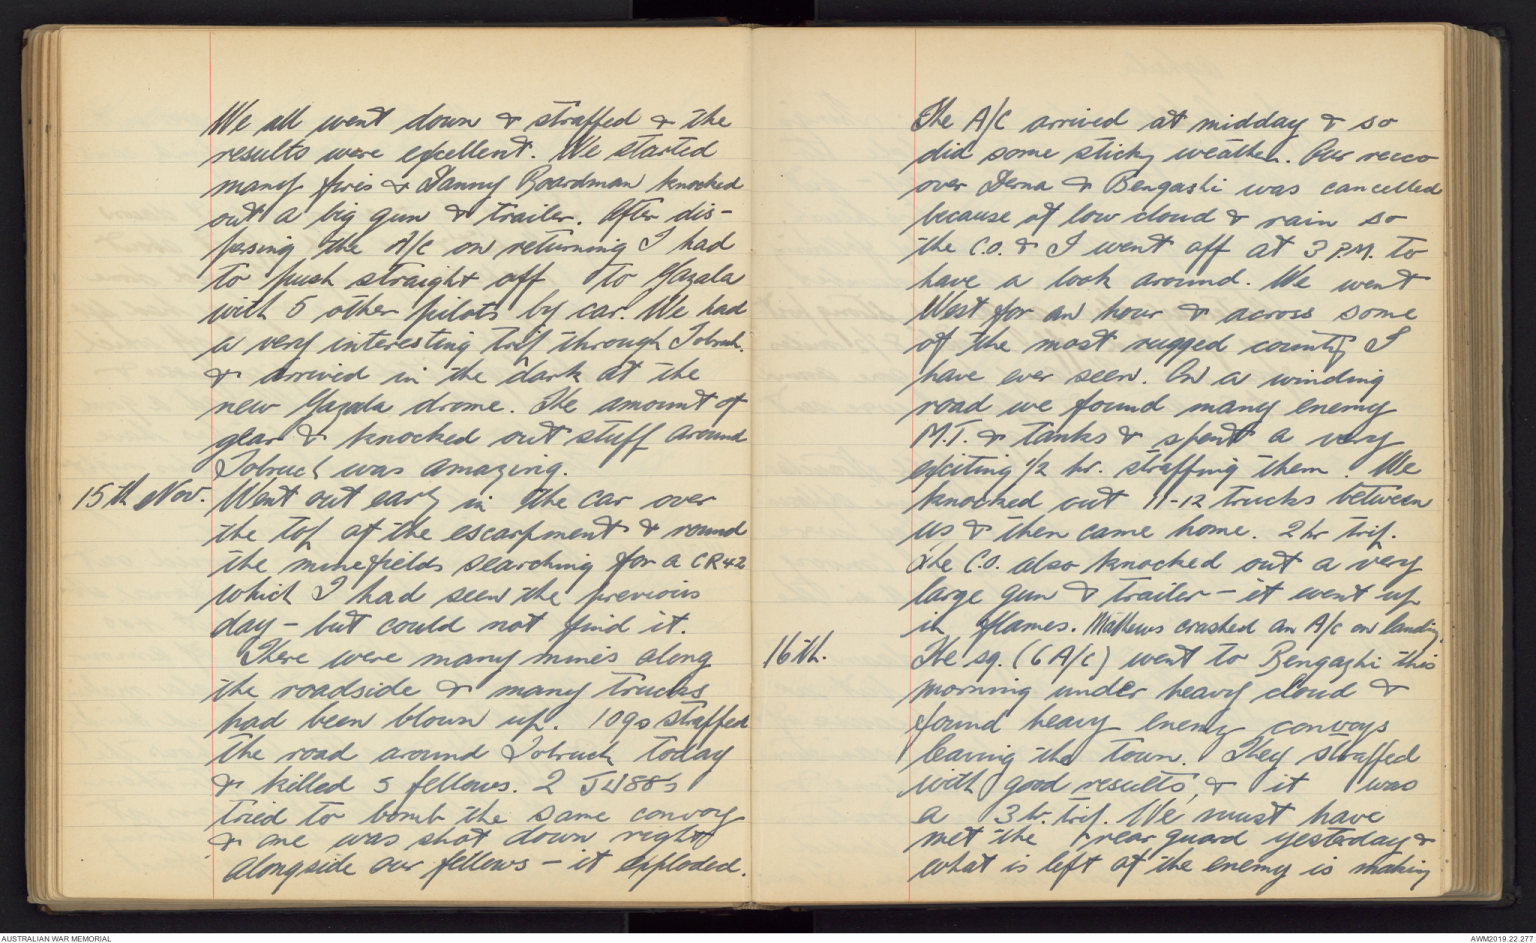 We all went down & straffed & the
results were excellent. We started
many firis & Danny Boardman knocked
out a big gun & trailer. After dis-
persing the A/C on returning I had
to push straight off to Gazala
with 5 other pilots by car. We had
a very interesting trip through Tobruk.
& arrived in the dark at the
new Gazala drome. The amount of
gear & knocked out stuff around
Tobruck was amazing.
15th Nov. Went out early in the car over
the top of the escarpment & round
the minefields searching for a CR42
which I had seen the previous
day - but could not find it.
There were many mines along
the roadside & many trucks
had been blown up. 109s straffed
the road around Tobruck today
& killed 5 fellows. 2 JU88s
tried to bomb the same convoy
& one was shot down right
alongside our fellows - it exploded.
The A/C arrived at midday & so
did some sticky weather. Our recco
over Derna & Bengashi was cancelled
because of low cloud & rain so
the C.O. & I went off at 3 P.M. to
have a look around. We went
West for an hour & across some
of the most rugged country I
have ever seen. On a winding
road we found many enemy
M.T. & tanks & spent a very
exciting 1/2 hr. straffing them. We
knocked out 11-12 trucks between
us & then came home. 2 hr trip.
The C.O. also knocked out a very
large gun & trailer - it went up
in flames. Mathews crashed an A/C on landing.
16th. The sq. (6 A/C) went to Bengazhi this
morning under heavy cloud &
found heavy enemy convoys
leaving the town. They straffed
with good results, & it was
a 3 hr. trip. We must have
met the rear guard yesterday &
what is left of the enemy is making
AUSTRALIAN WAR MEMORIAL
AWM2019.22.277